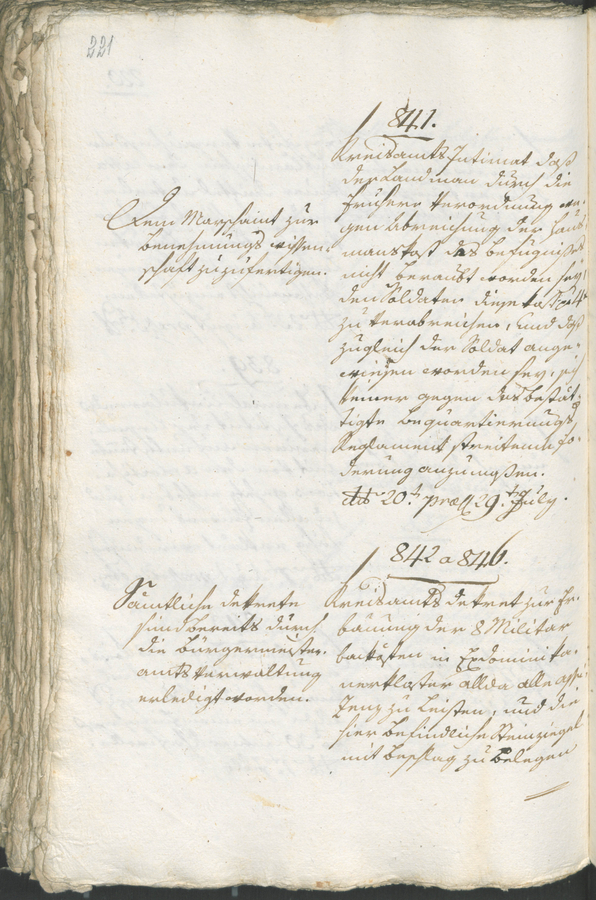 221
841.
Kreisamts Intimat daß
der Landman durch die
frühere Verordnung we-
gen Abreichung der Haus-
manskost des Befugnißes
nicht beraubt worden sey,
den Soldaten diese Kost
zu verabreichen, und daß
zugleich der Soldat ange-
wiesen worden sey, sich
keiner gegen das bestät-
tigte Bequartierungs
Reglament streitende Fo-
derung anzumaßen.
dto 20t. praes. 29t. July.
Dem Marschamt zur
Benehmungs wissen-
schaft zuzufertigen.
842 a 846.
Kreisamts Dekret zur Er-
bauung der 8 Militar
backöfen in Exdominika-
nerkloster allda alle assi-
stenz zu leisten, und die
hier befindliche Steinziegel
mit Beschlag zu belegen
Sämtliche Dekrete
sind bereits durch
die Bürgermeister-
amts Verwaltung
erledigt worden.